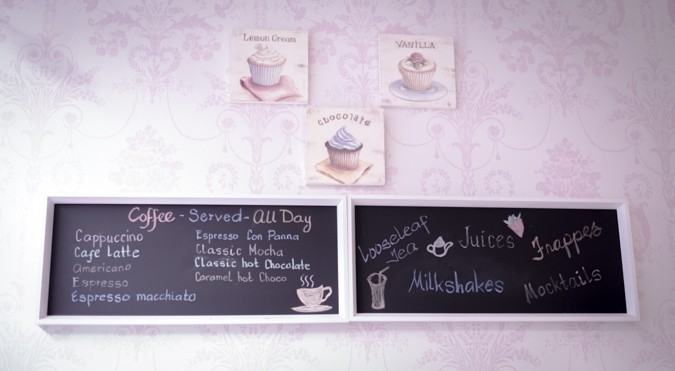 Lemon Cream
VANILLA
Chocolate
Coffee - Served - All Day
Cappuccino
Cafe Latte
Americano
Espresso
Espresso macchiato
Espresso Con Panna
Classic Mocha
Classic hot Chocolate
Caramel hot Choco
Looseleaf
Tea
Juices
Frappes
Milkshakes
Mocktails